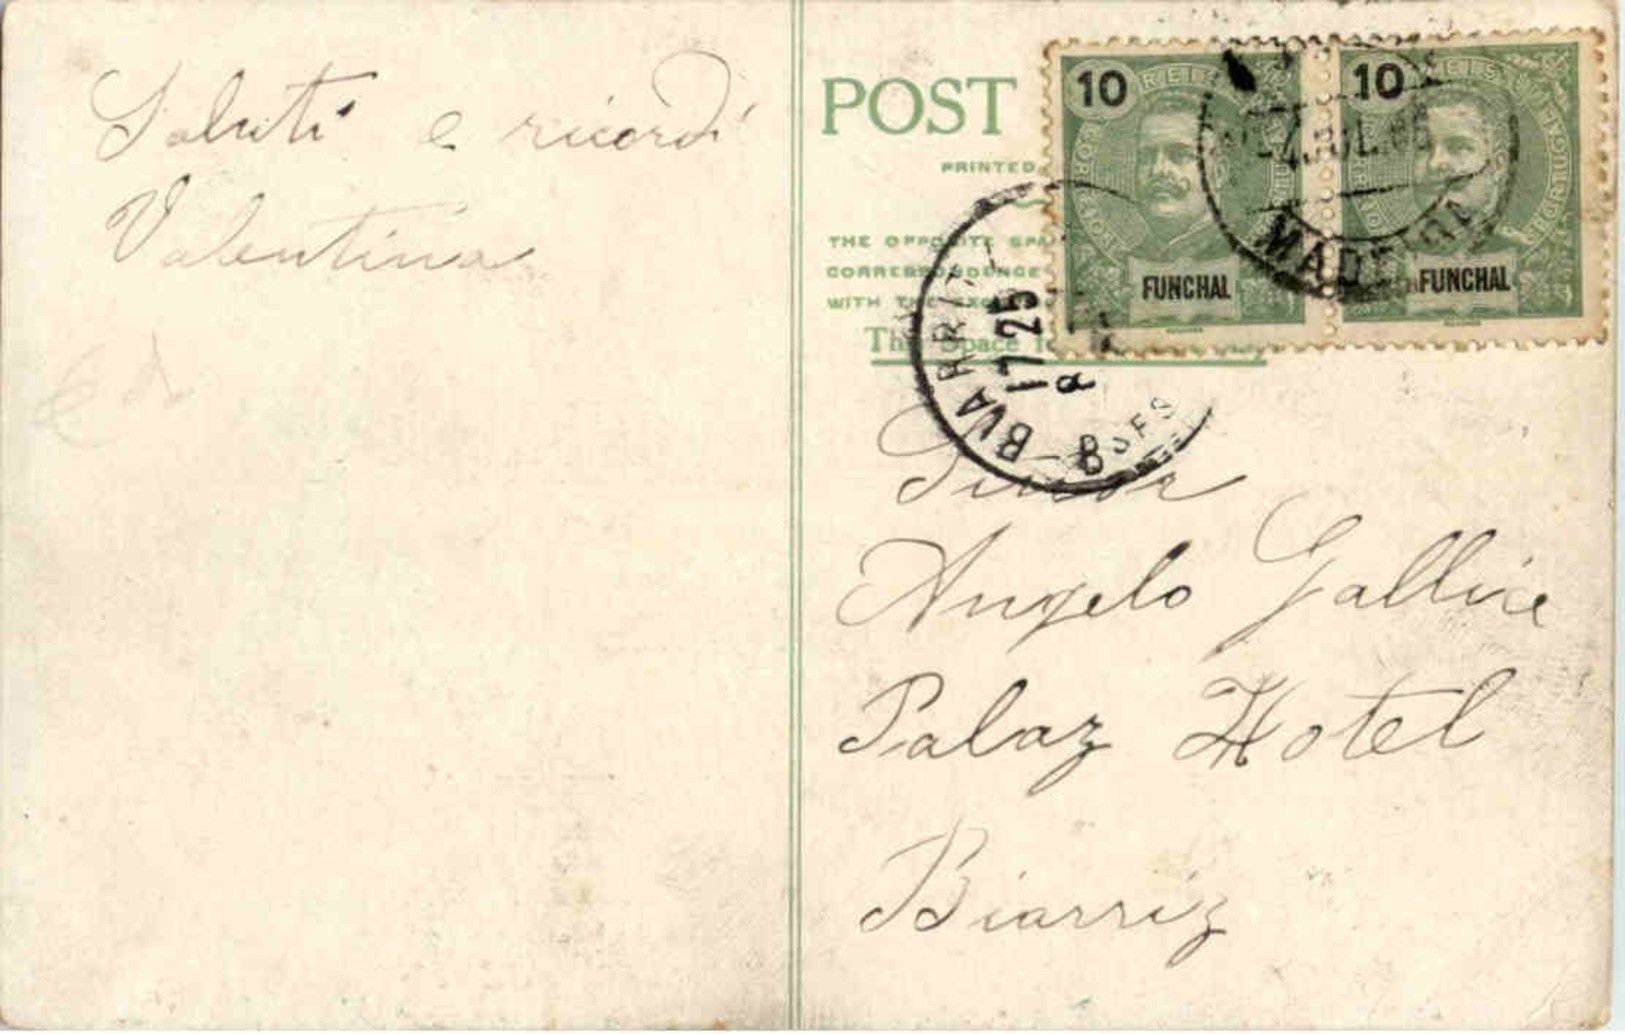 Saluti e ricordi
Valentina
POST
PRINTED
THE OPPOSITE SPA
CORRESPONDENCE
WITH THE EXC
This Space fo
10 REIS
FUNCHAL
10 REIS
FUNCHAL
4 JUL
BIARRITZ
17 25
8
BSES
Angelo Galline
Palaz Hotel
Biarriz